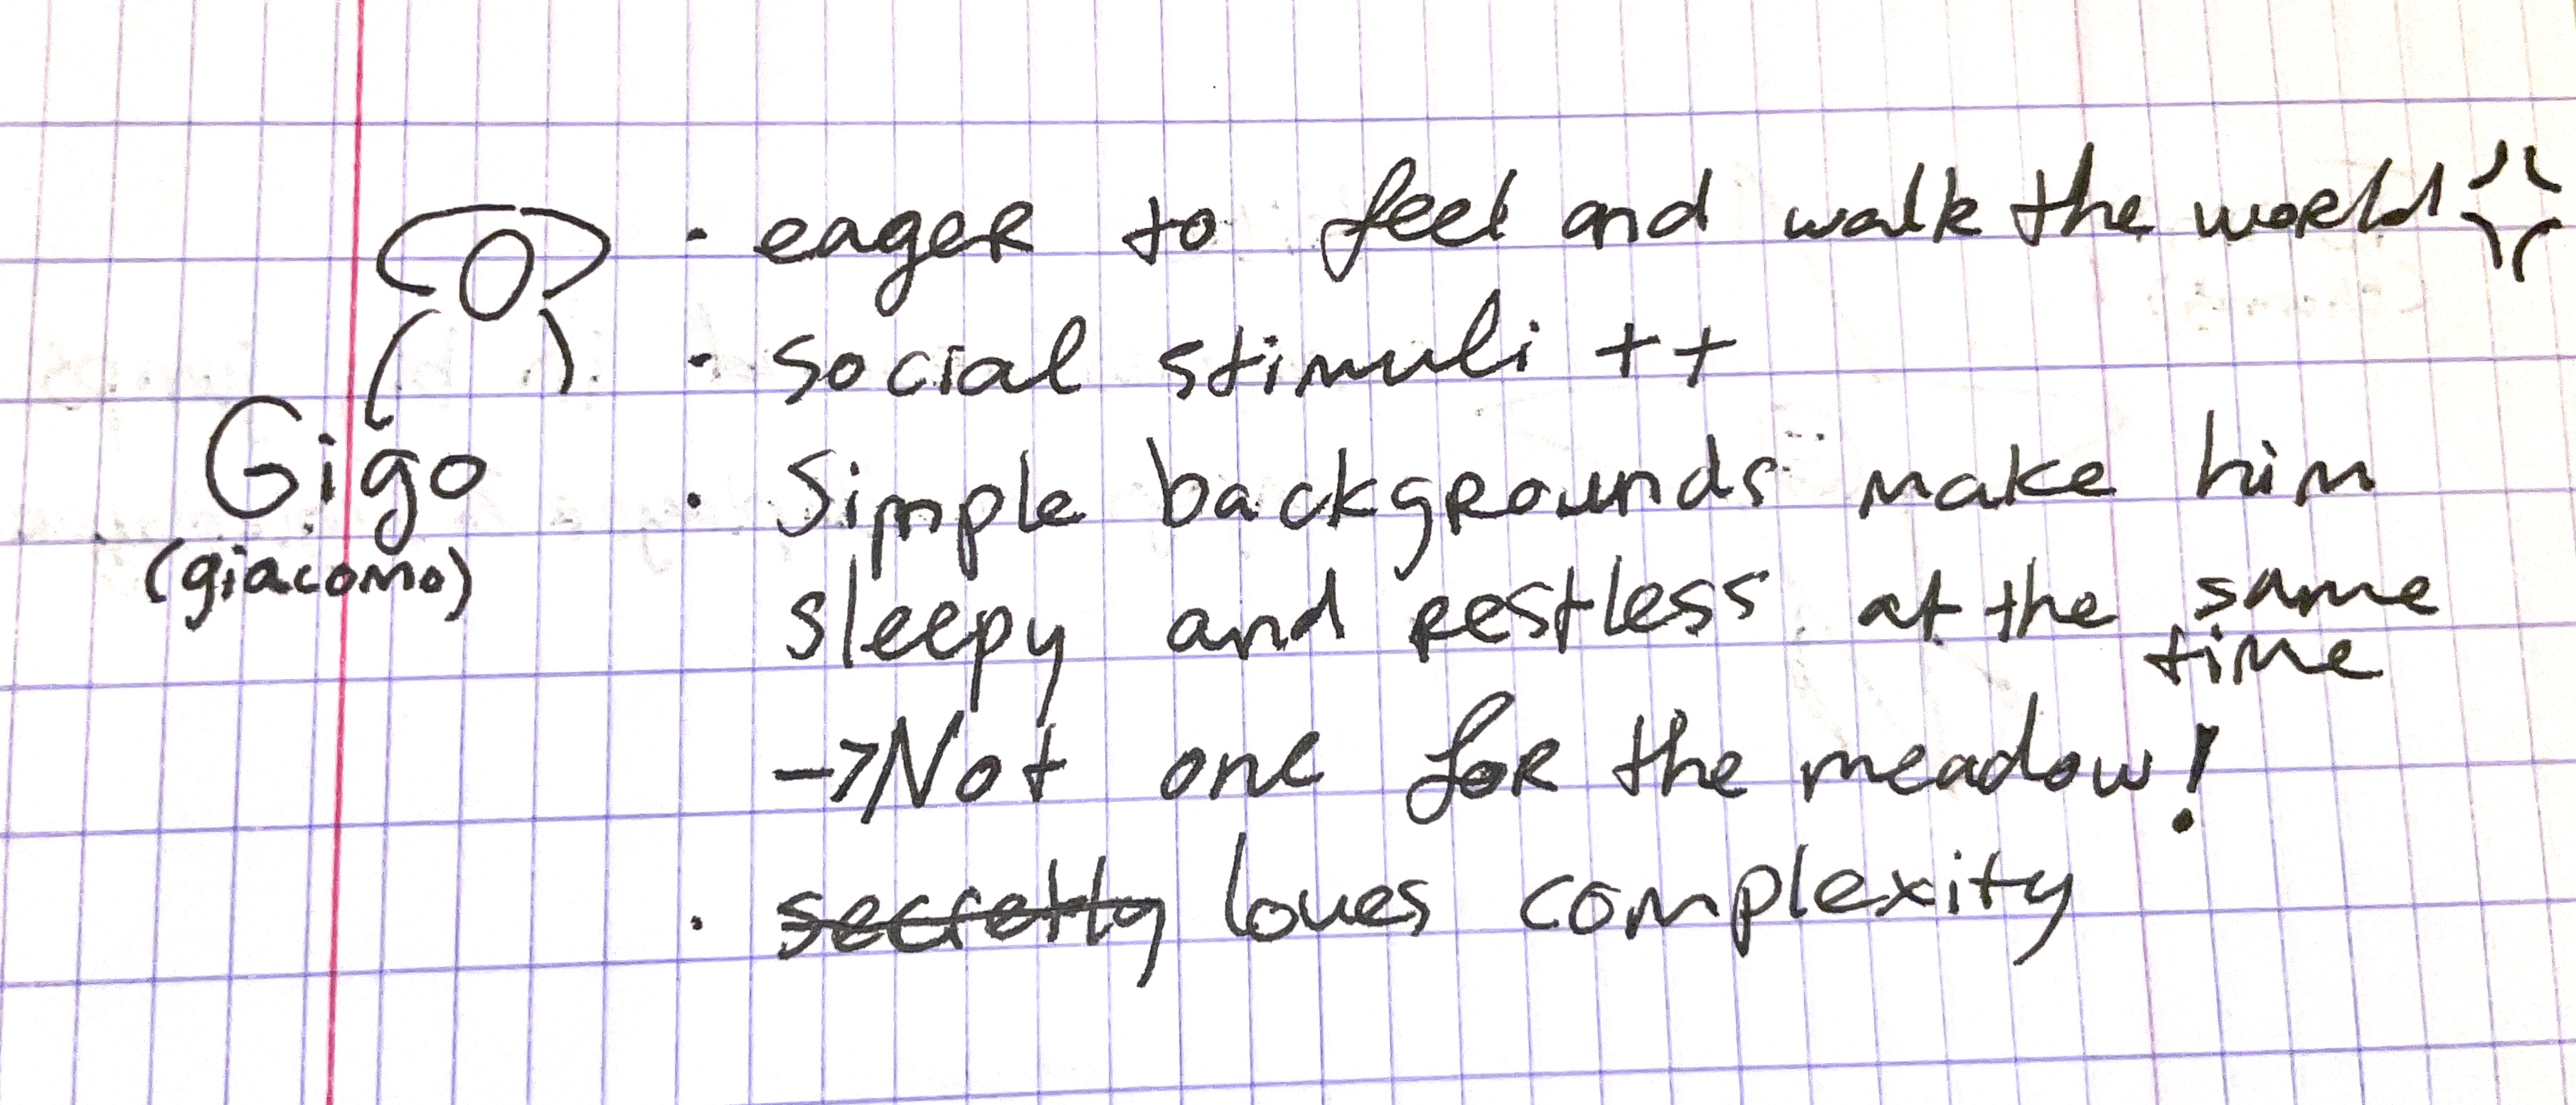 · eager to feel and walk the world
· social stimuli ++
Gigo
(giacomo)
· Simple backgrounds make him
sleepy and restless at the same
time
→Not one for the meadow!
· secretly loves complexity